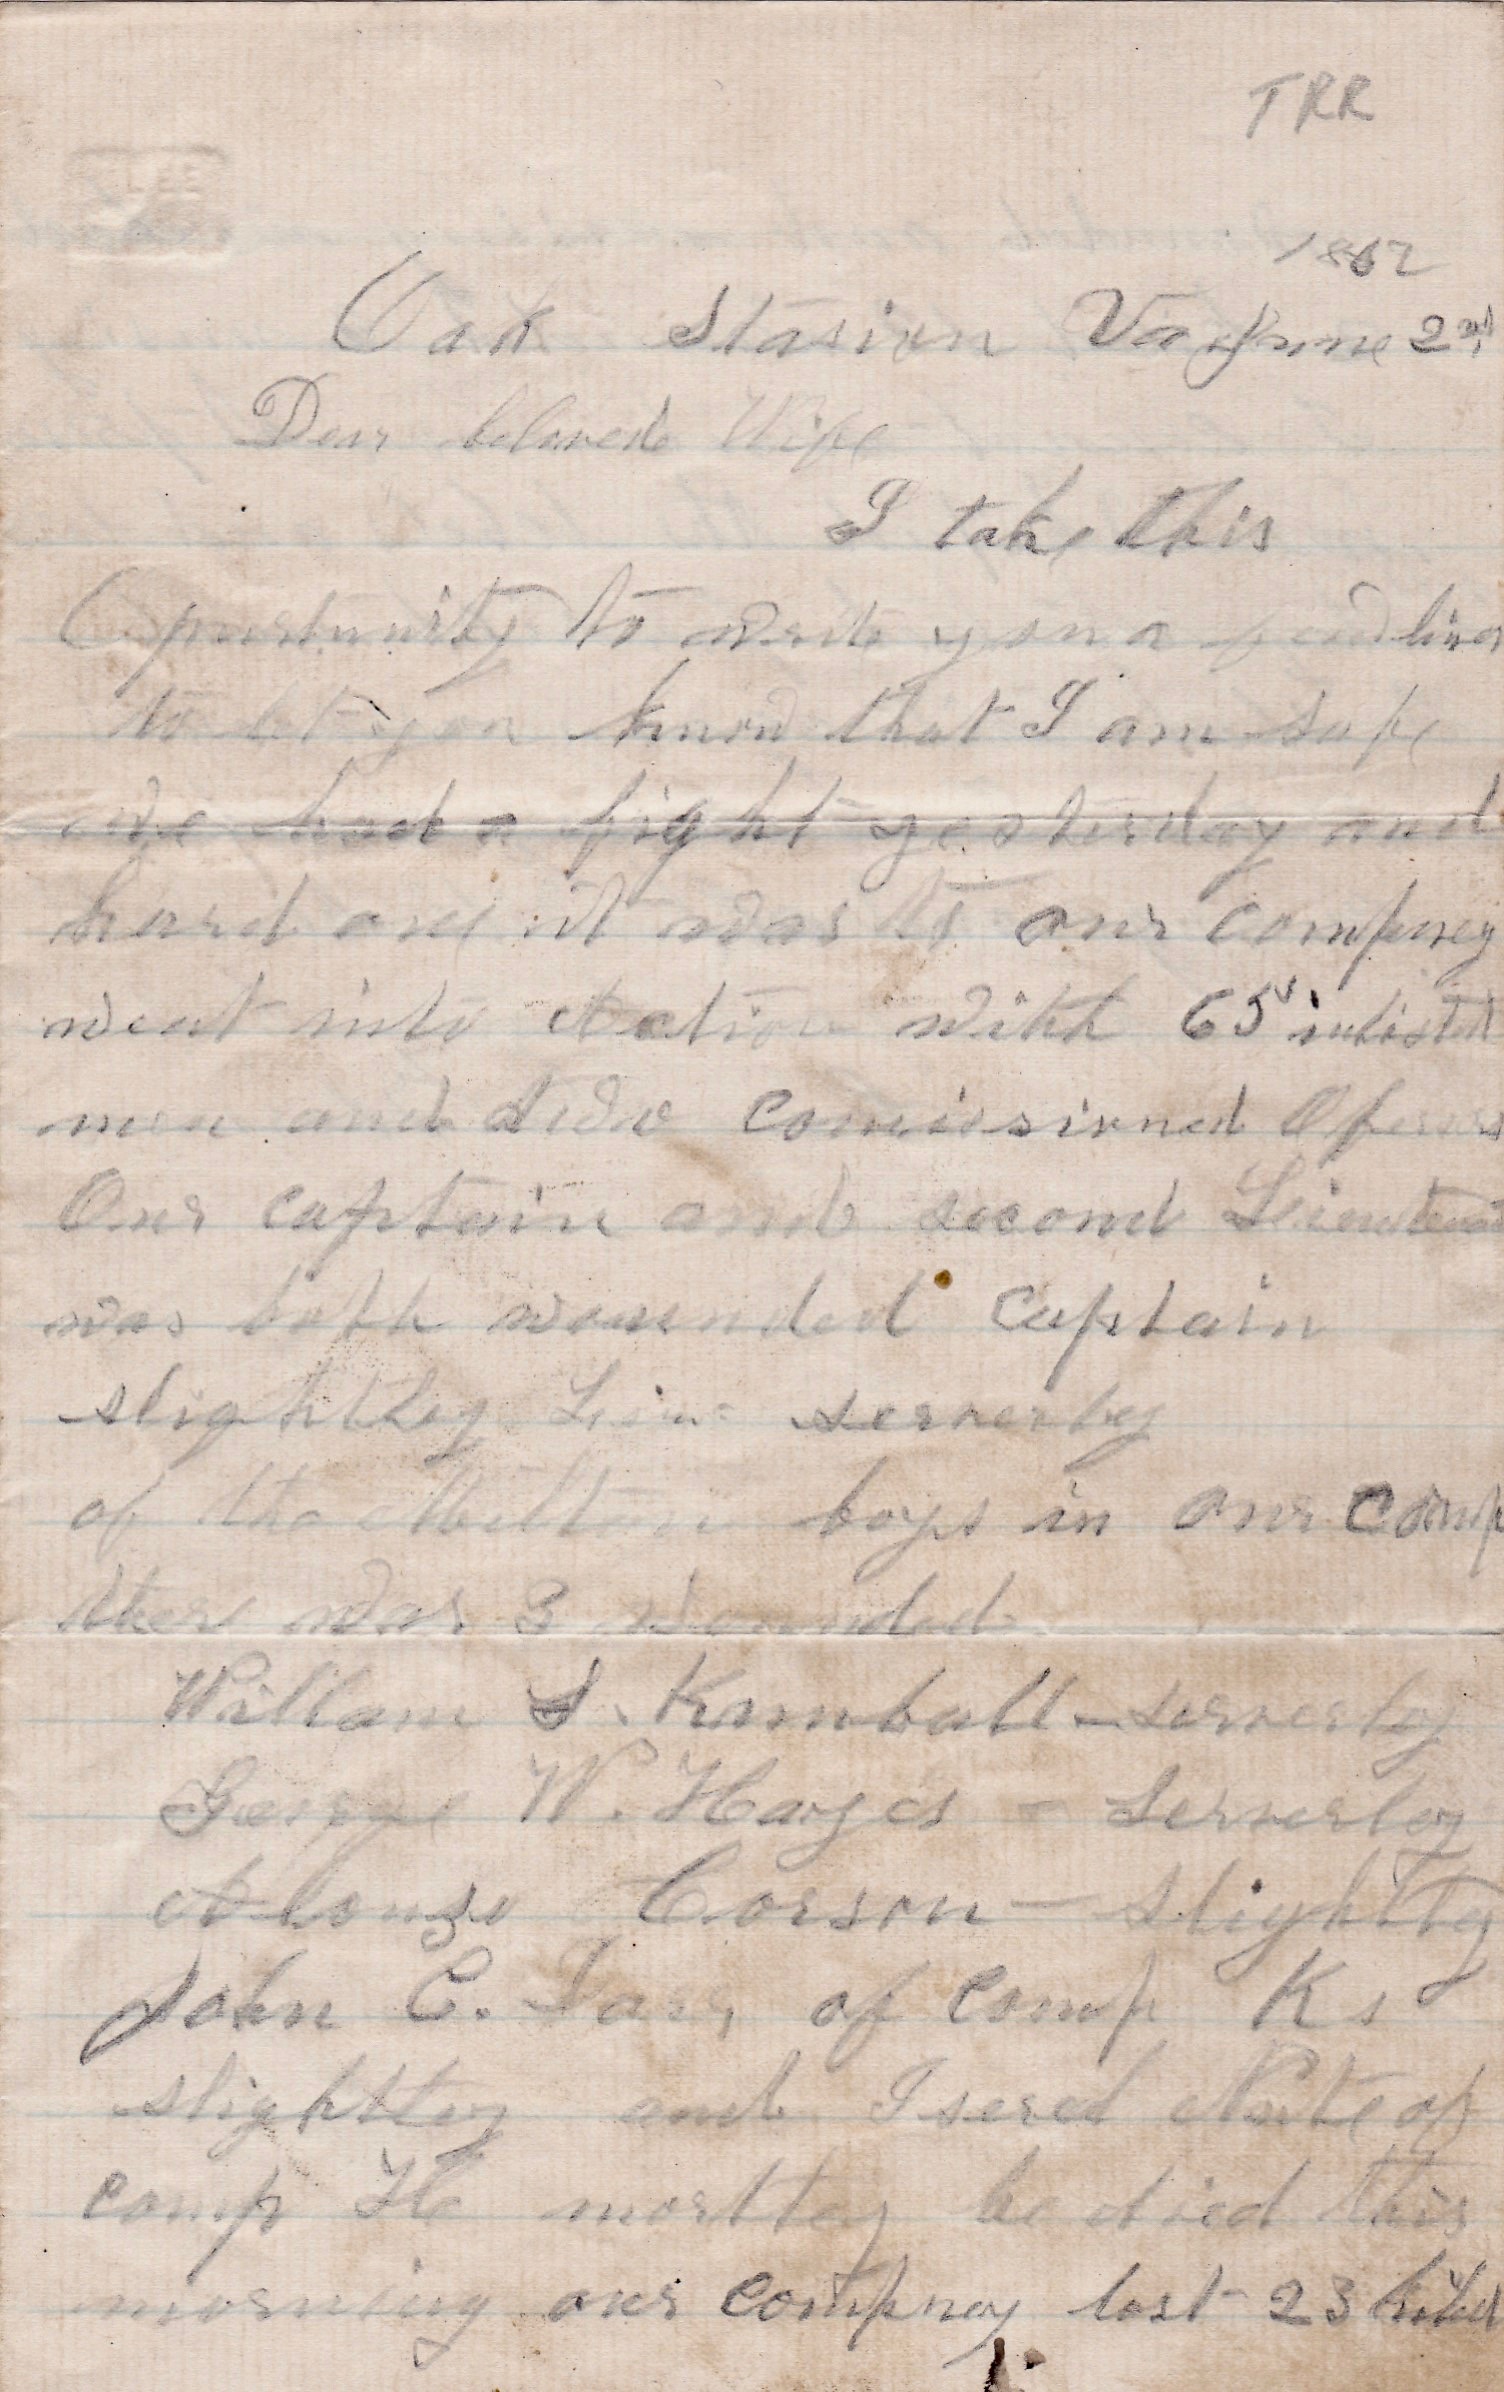 TRR
LEE
1862
Oak Stasion Va June 2nd
Dear beloved Wife
I take this
Opurtunity to write you a few lines
to let you know that I am safe
we had a fight yesterday and
hard one it was to our compney
went into Action with 65 inlisted
men and two comissioned Ofecers
Our captain and second Lieutenant
was both wounded captain
slightley Lieu serverley
of the Milton boys in our comp
there was 3 wounded
Willam S. Kimball - serverley
George W. Hayes - Serverley
Alonzo Corson - slightley
John C. of comp K s
slightley and Iserel Nute of
comp H mortley he died this
morning our compney lost 23 killed